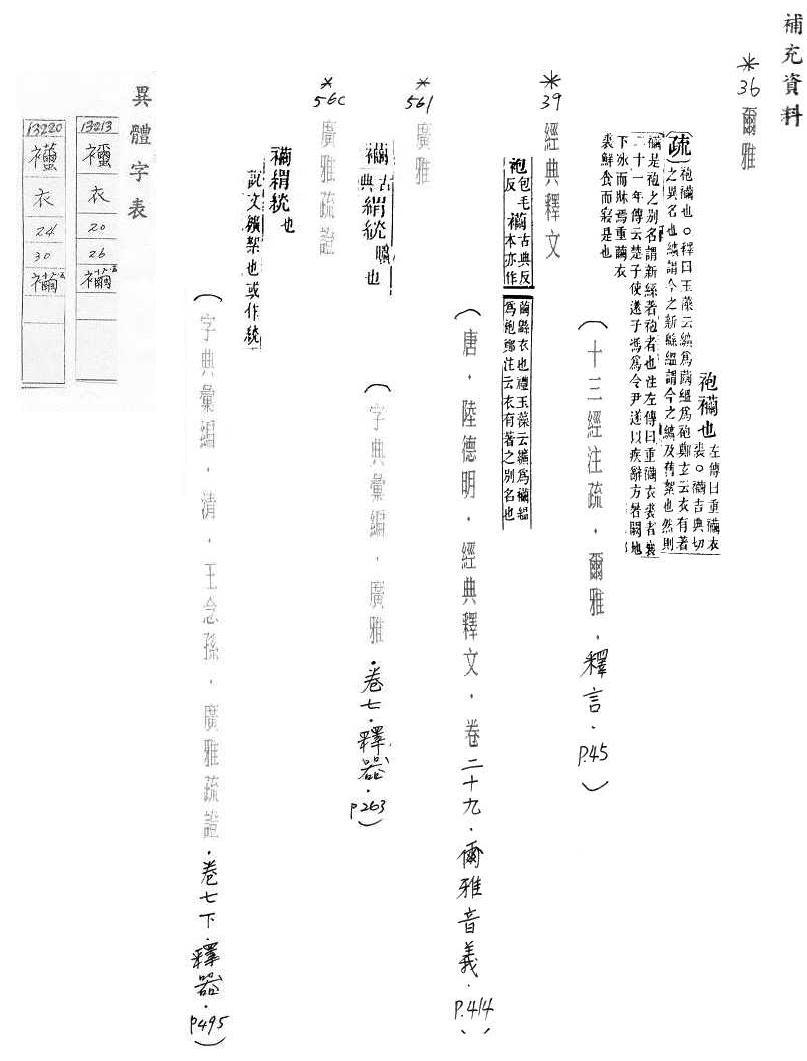 補充資料
*36 爾雅
袍襺也
左傳曰重襺衣
裘○襺古典切
疏
袍襺也○釋曰玉藻云纊為繭縕為袍鄭玄云衣有著
之異名也纊謂今之新緜縕謂今之纊及舊絮也然則
襺是袍之別名謂新緜著袍者也注左傳曰重襺衣裘者襄
二十一年傳云楚子使薳子馮為令尹遂以疾辭方暑闕地
下冰而牀焉重繭衣
裘鮮食而寢是也
(十三經注疏．爾雅．釋言．P.45)
*39 經典釋文
袍
包毛
反
襺
古典反
本亦作
繭緜衣也禮玉藻云纊為襺縕
為袍鄭注云衣有著之別名也
(唐．陸德明．經典釋文．卷二十九．爾雅音義．P.414)
*561 廣雅
襺古典絹絖曠也
(字典彙編．廣雅．卷七．釋器．P263)
*56c 廣雅疏證
襺絹絖也
說文纊絮也或作絖
(字典彙編．清．王念孫．廣雅疏證．卷七下．釋器．P495)
異體字表
13213
衣
20
26
襺
13220
衣
24
30
襺